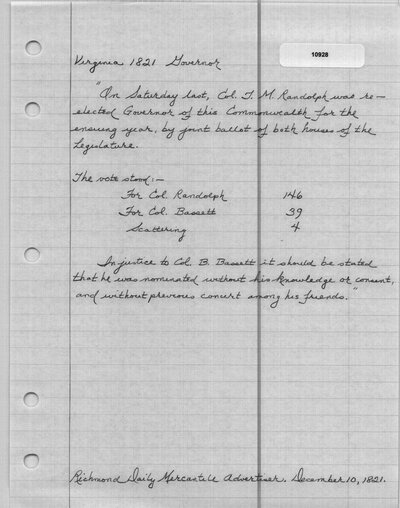 10928
Virginia 1821 Governor
"On Saturday last, Col. T. M. Randolph was re-
elected Governor of this Commonwealth for the
ensuing year, by joint ballot of both houses of the
Legislature.
The vote stood:-
For Col. Randolph 146
For Col. Bassett 39
Scattering 4
In justice to Col. B. Bassett it should be stated
that he was nominated without his knowledge or consent,
and without previous concert among his friends."
Richmond Daily Mercantile Advertiser. December 10, 1821.